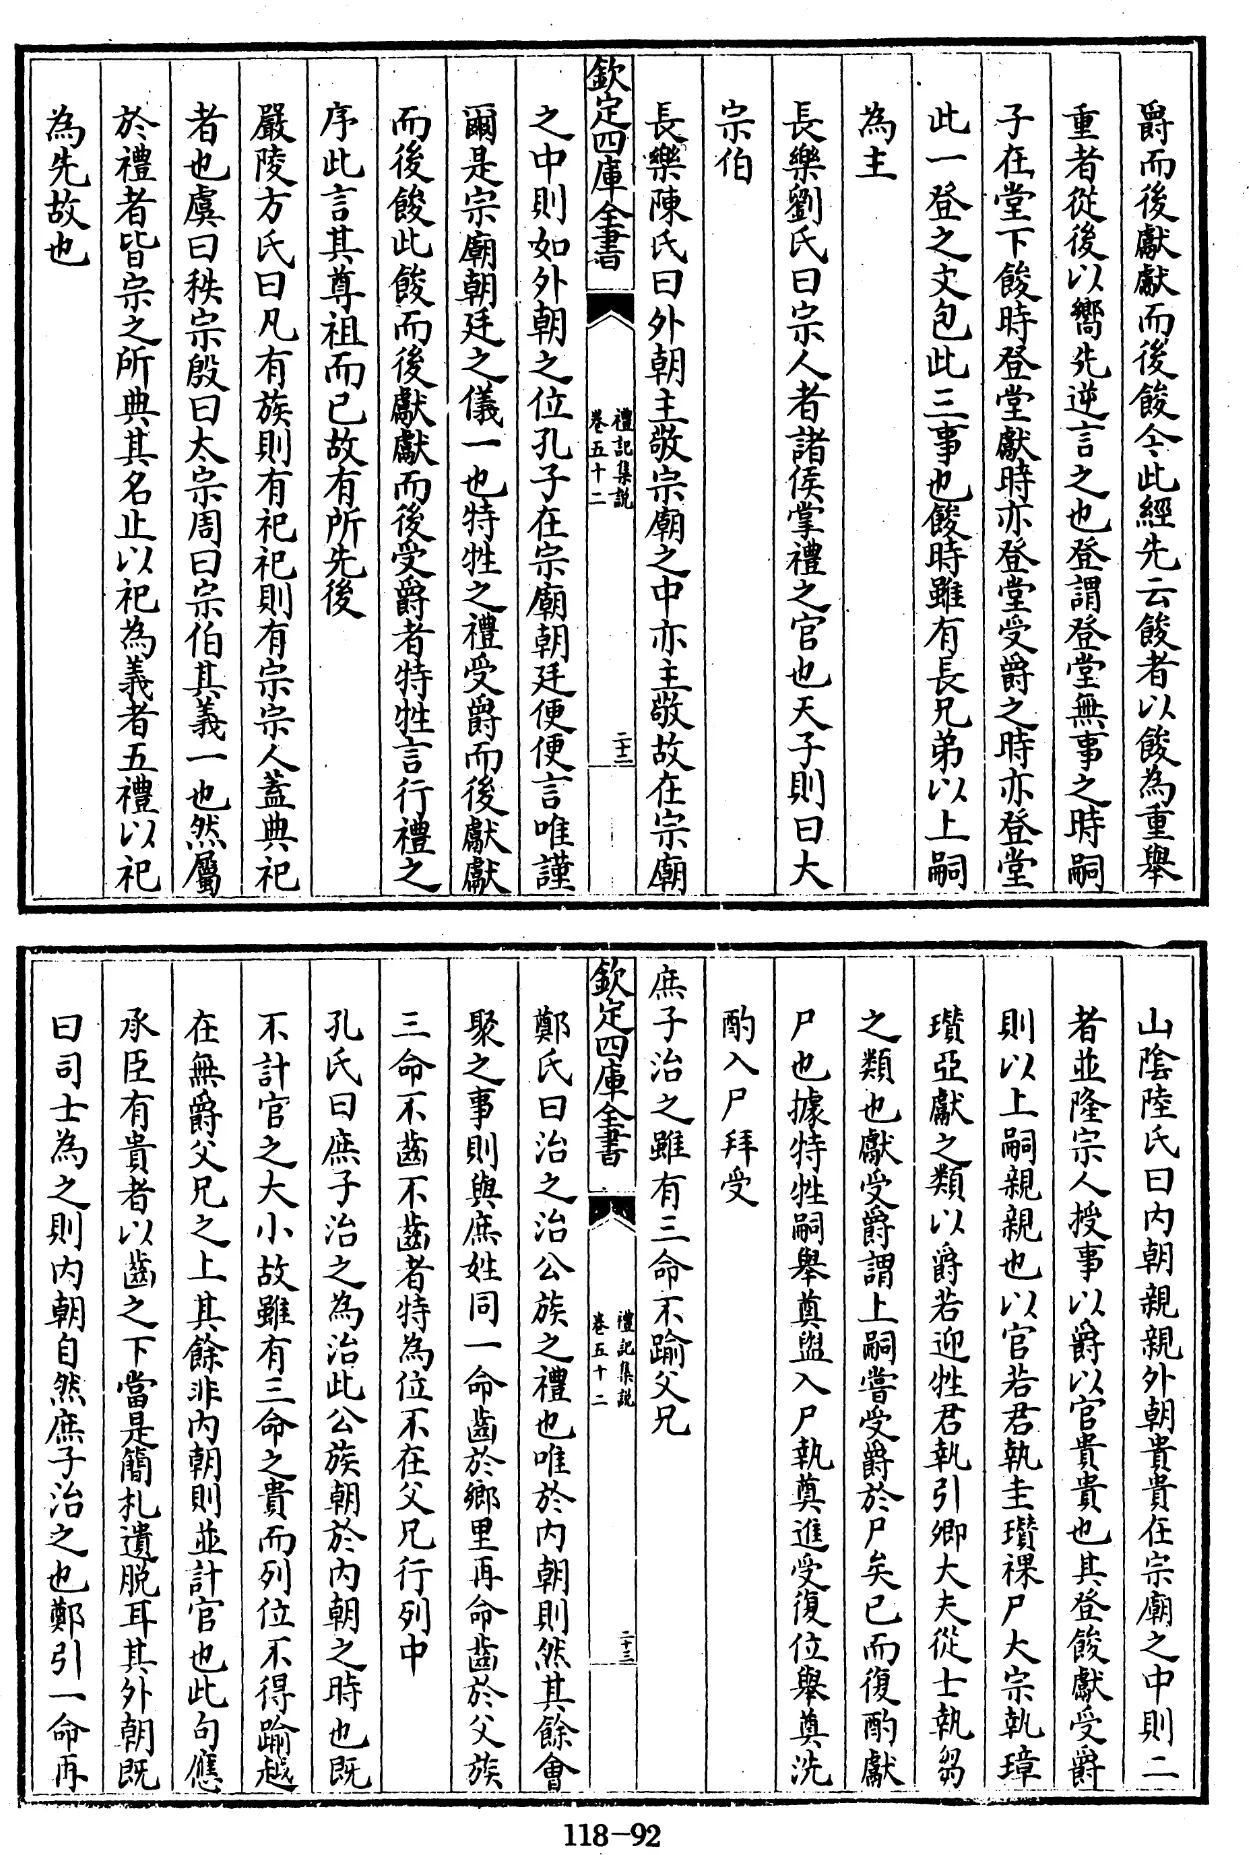 爵而後獻獻而後餕今此經先云餕者以餕為重舉
重者從後以嚮先逆言之也登謂登堂無事之時嗣
子在堂下餕時登堂獻時亦登堂受爵之時亦登堂
此一登之文包此三事也餕時雖有長兄弟以上嗣
為主
長樂劉氏曰宗人者諸侯掌禮之官也天子則曰大
宗伯
長樂陳氏曰外朝主敬宗廟之中亦主敬故在宗廟
欽定四庫全書
禮記集說
卷五十二
二十二
之中則如外朝之位孔子在宗廟朝廷便便言唯謹
爾是宗廟朝廷之儀一也特牲之禮受爵而後獻獻
而後餕此餕而後獻獻而後受爵者特牲言行禮之
序此言其尊祖而已故有所先後
嚴陵方氏曰凡有族則有祀祀則有宗宗人蓋典祀
者也虞曰秩宗殷曰太宗周曰宗伯其義一也然屬
於禮者皆宗之所典其名止以祀為義者五禮以祀
為先故也
山陰陸氏曰內朝親親外朝貴貴在宗廟之中則二
者並隆宗人授事以爵以官貴貴也其登餕獻受爵
則以上嗣親親也以官若君執圭瓚祼尸大宗執璋
瓚亞獻之類以爵若迎牲君執引卿大夫從士執芻
之類也獻受爵謂上嗣嘗受爵於尸矣已而復酌獻
尸也據特牲嗣舉奠盥入尸執奠進受復位舉奠洗
酌入尸拜受
庶子治之雖有三命不踰父兄
欽定四庫全書
禮記集說
卷五十二
二十三
鄭氏曰治之治公族之禮也唯於內朝則然其餘會
聚之事則與庶姓同一命齒於鄉里再命齒於父族
三命不齒不齒者特為位不在父兄行列中
孔氏曰庶子治之為治此公族朝於內朝之時也既
不計官之大小故雖有三命之貴而列位不得踰越
在無爵父兄之上其餘非內朝則並計官也此句應
承臣有貴者以齒之下當是簡札遺脫耳其外朝既
曰司士為之則內朝自然庶子治之也鄭引一命再
118-92